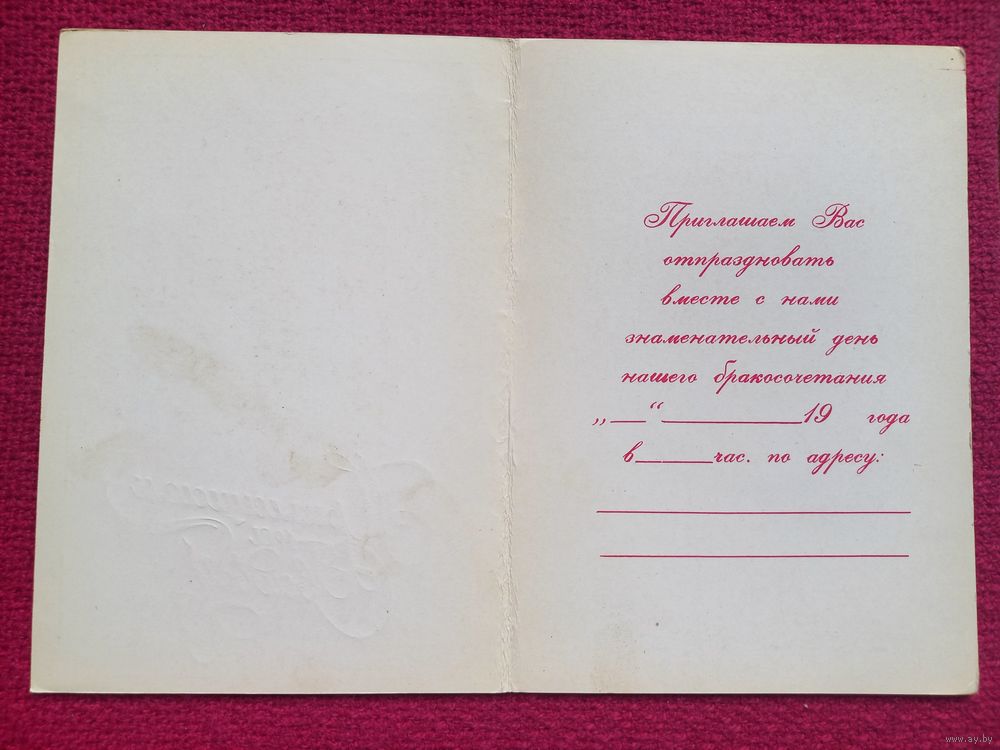 Приглашаем Вас
отпраздновать
вместе с нами
знаменательный день
нашего бракосочетания
„__“__________19 года
в______час. по адресу:
www.ay.by